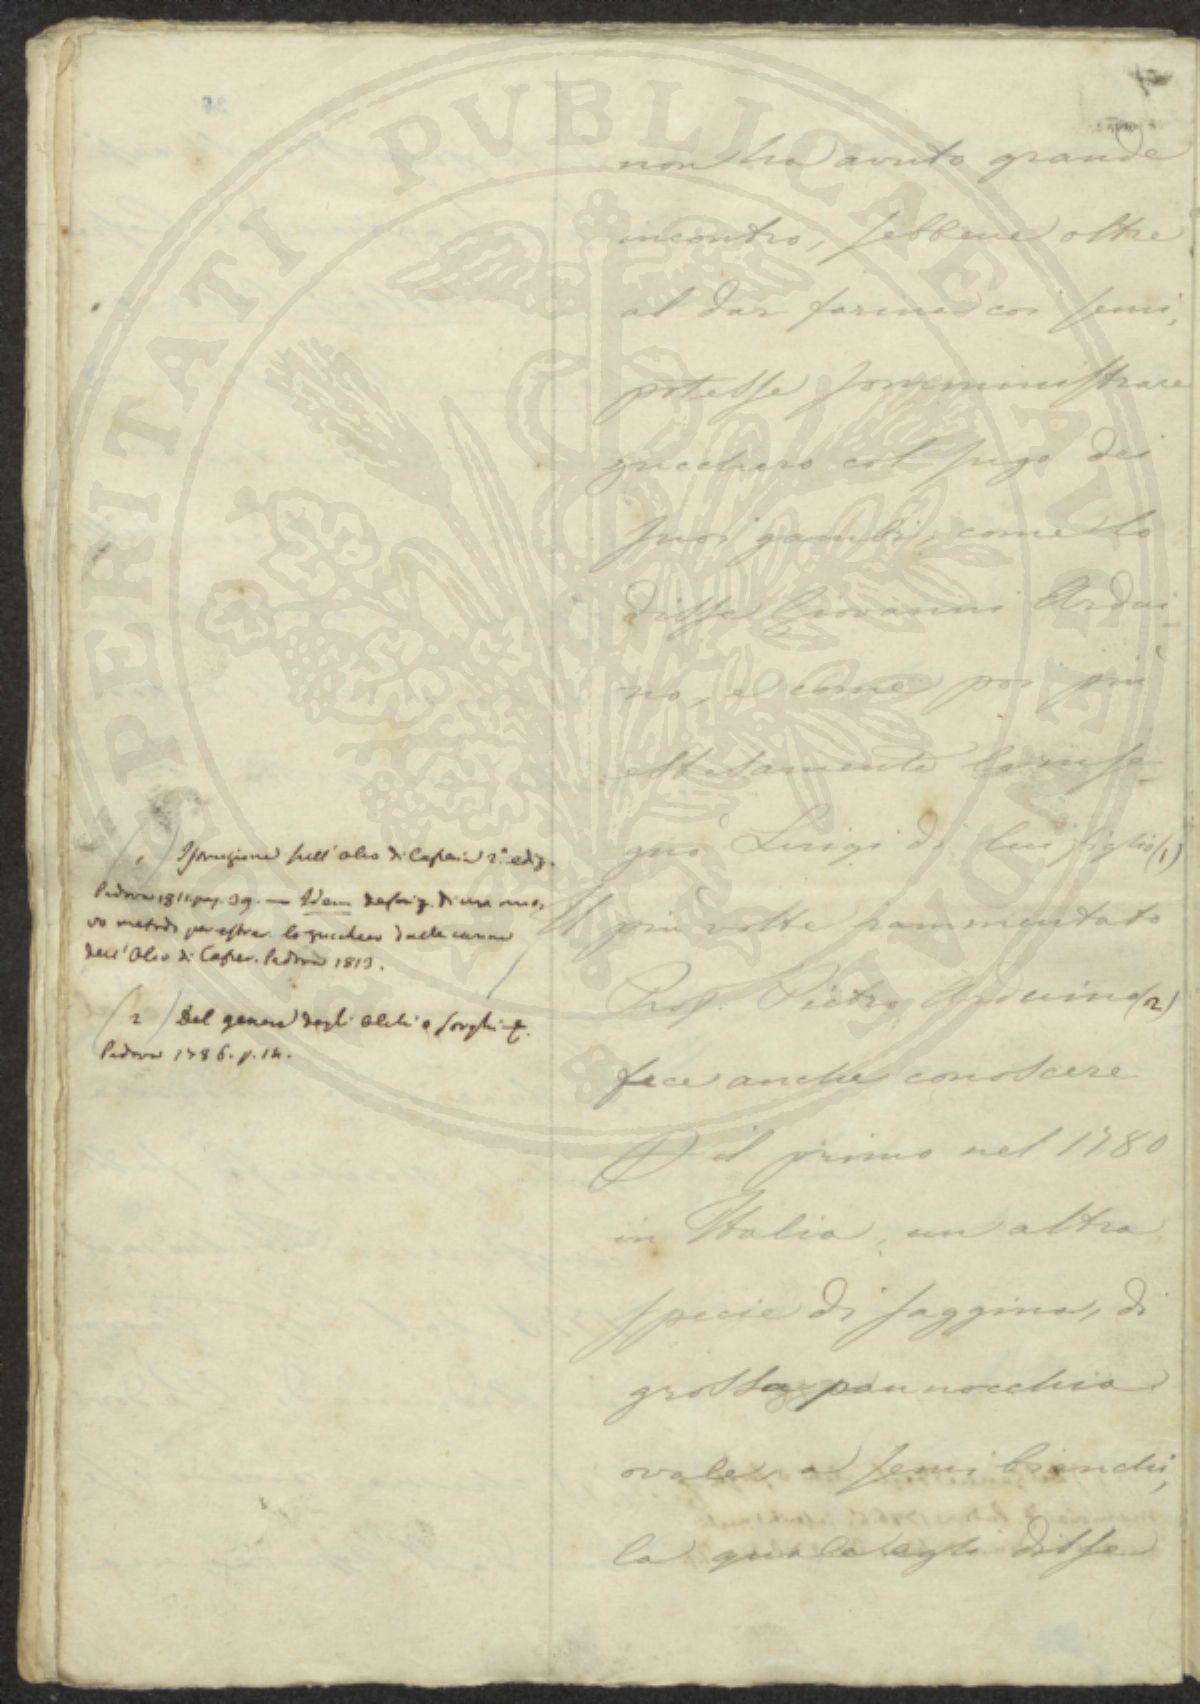 non ha avuto grande
incontro, sebbene oltre
al dar farina coi semi,
potesse somministrare
zucchero col sugo dei
suoi gambi, come lo
disse Giovanni Ardui
no, e come poi più
estesamente lo inse
gnò Luigi di lui figlio (1)
Il più volte rammentato
Prof. Pietro Arduino (2)
fece anche conoscere
il primo nel 1780
in Italia, un altra
specie di saggina, di
grossa pannocchia
ovale, a semi bianchi,
la quale egli disse
(1) Istruzione sull'olco di Cafreria 2.a ediz.
Padova 1811. pag. 39. — Idem descriz. di un nuo,
vo metodo per estrar. lo zucchero dalle canne
dell'Olco di Cafrer. Padova 1813.
(2) Del genere degli Olchi o sorghi &.
Padova 1786. p. 14.
PROSPERITATI PVBLICAE AVGENDAE